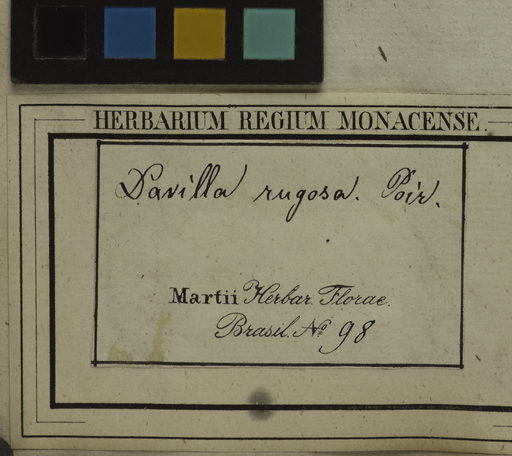 HERBARIUM REGIUM MONACENSE.
Davilla rugosa. Poir.
Martii Herbar. Florae.
Brasil. No 98